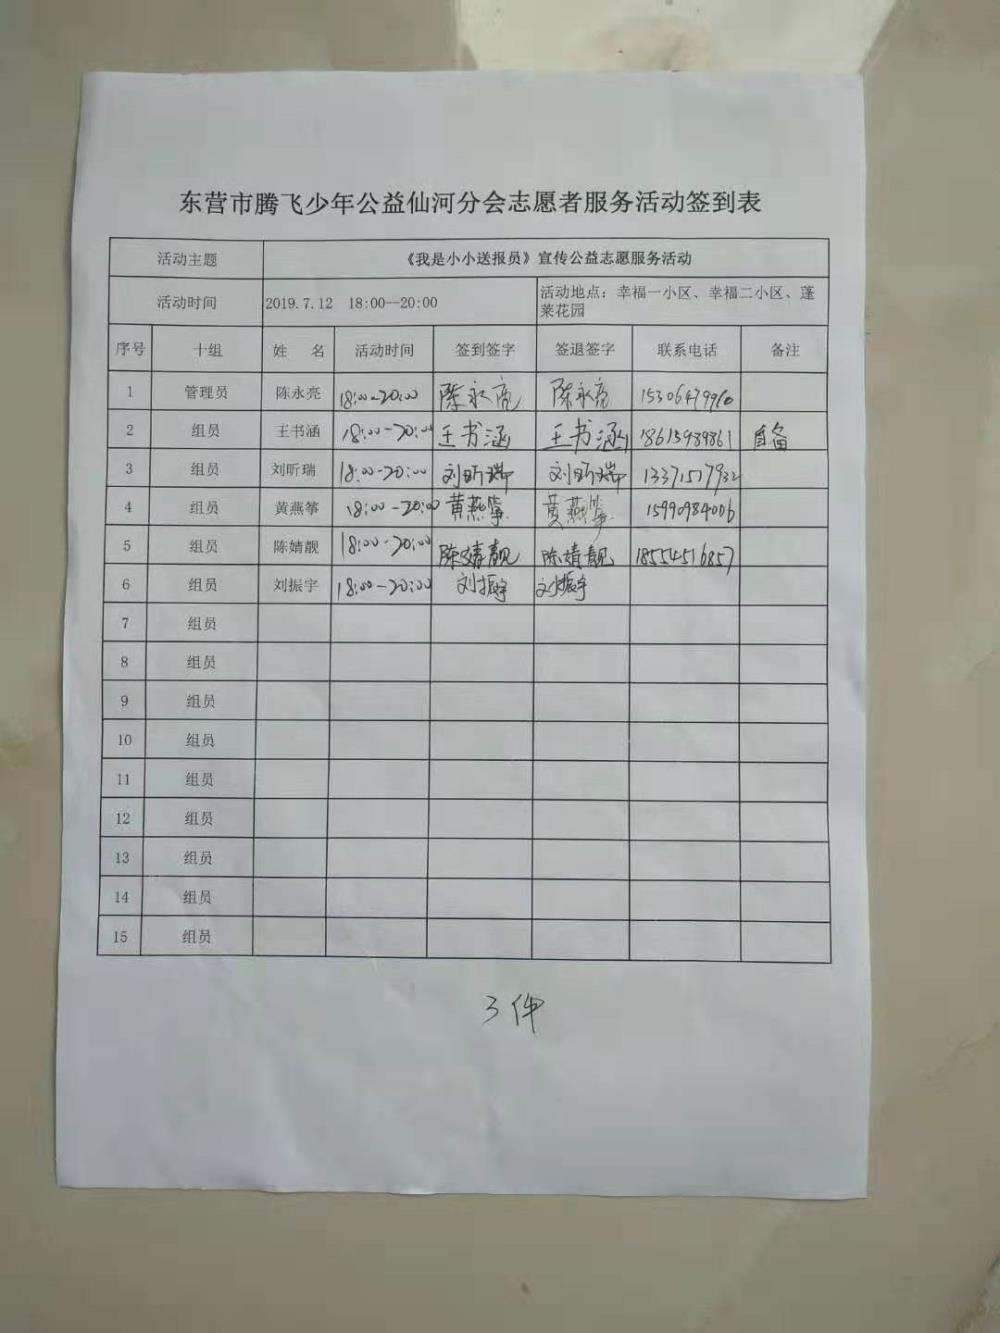 东营市腾飞少年公益仙河分会志愿者服务活动签到表
活动主题 《我是小小送报员》宣传公益志愿服务活动
活动时间 2019.7.12 18:00--20:00 活动地点：幸福一小区、幸福二小区、蓬
莱花园
序号 十组 姓 名 活动时间 签到签字 签退签字 联系电话 备注
1 管理员 陈永亮 18:00-20:00 陈永亮 陈永亮
2 组员 王书涵 18:00-20:00 王书涵 王书涵 18615989861 自备
3 组员 刘昕瑞 18:00-20:00 刘昕瑞 刘昕瑞 13371517932
4 组员 黄燕筝 18:00-20:00 黄燕筝 黄燕筝 15990984006
5 组员 陈婧靓 18:00-20:00 陈婧靓 陈婧靓 18554516857
6 组员 刘振宇 18:00-20:00 刘振宇 刘振宇
7 组员
8 组员
9 组员
10 组员
11 组员
12 组员
13 组员
14 组员
15 组员
3件